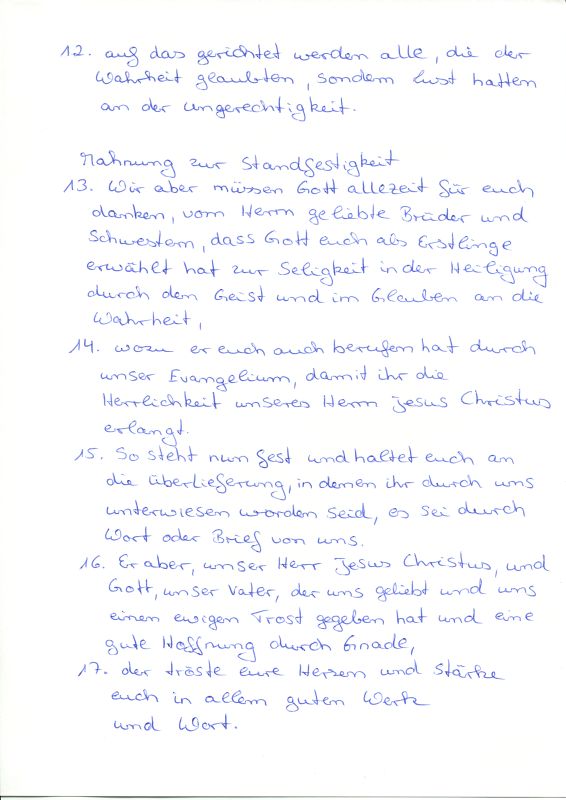 12. auf das gerichtet werden alle, die der
Wahrheit glaubten, sondern lust hatten
an der ungerechtigkeit.
Mahnung zur Standfestigkeit
13. Wir aber müssen Gott allezeit für euch
danken, vom Herrn geliebte Brüder und
Schwestern, dass Gott euch als Erstlinge
erwählt hat zur Seligkeit in der Heiligung
durch den Geist und im Glauben an die
Wahrheit,
14. wozu er euch auch berufen hat durch
unser Evangelium, damit ihr die
Herrlichkeit unseres Herrn Jesus Christus
erlangt.
15. So steht nun fest und haltet euch an
die überlieferung, in denen ihr durch uns
unterwiesen worden seid, es sei durch
Wort oder Brief von uns.
16. Er aber, unser Herr Jesus Christus, und
Gott, unser Vater, der uns geliebt und uns
einen ewigen Trost gegeben hat und eine
gute Hoffnung durch Gnade,
17. der tröste eure Herzen und stärke
euch in allem guten Werk
und Wort.